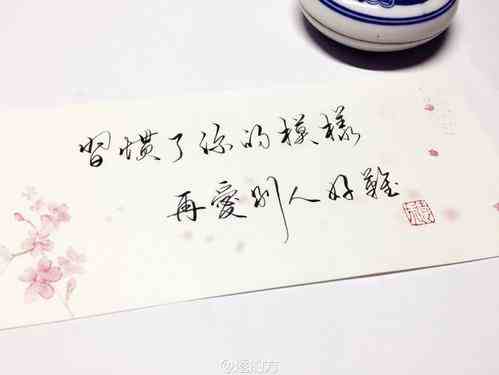 習慣了你的模樣
再愛別人好難